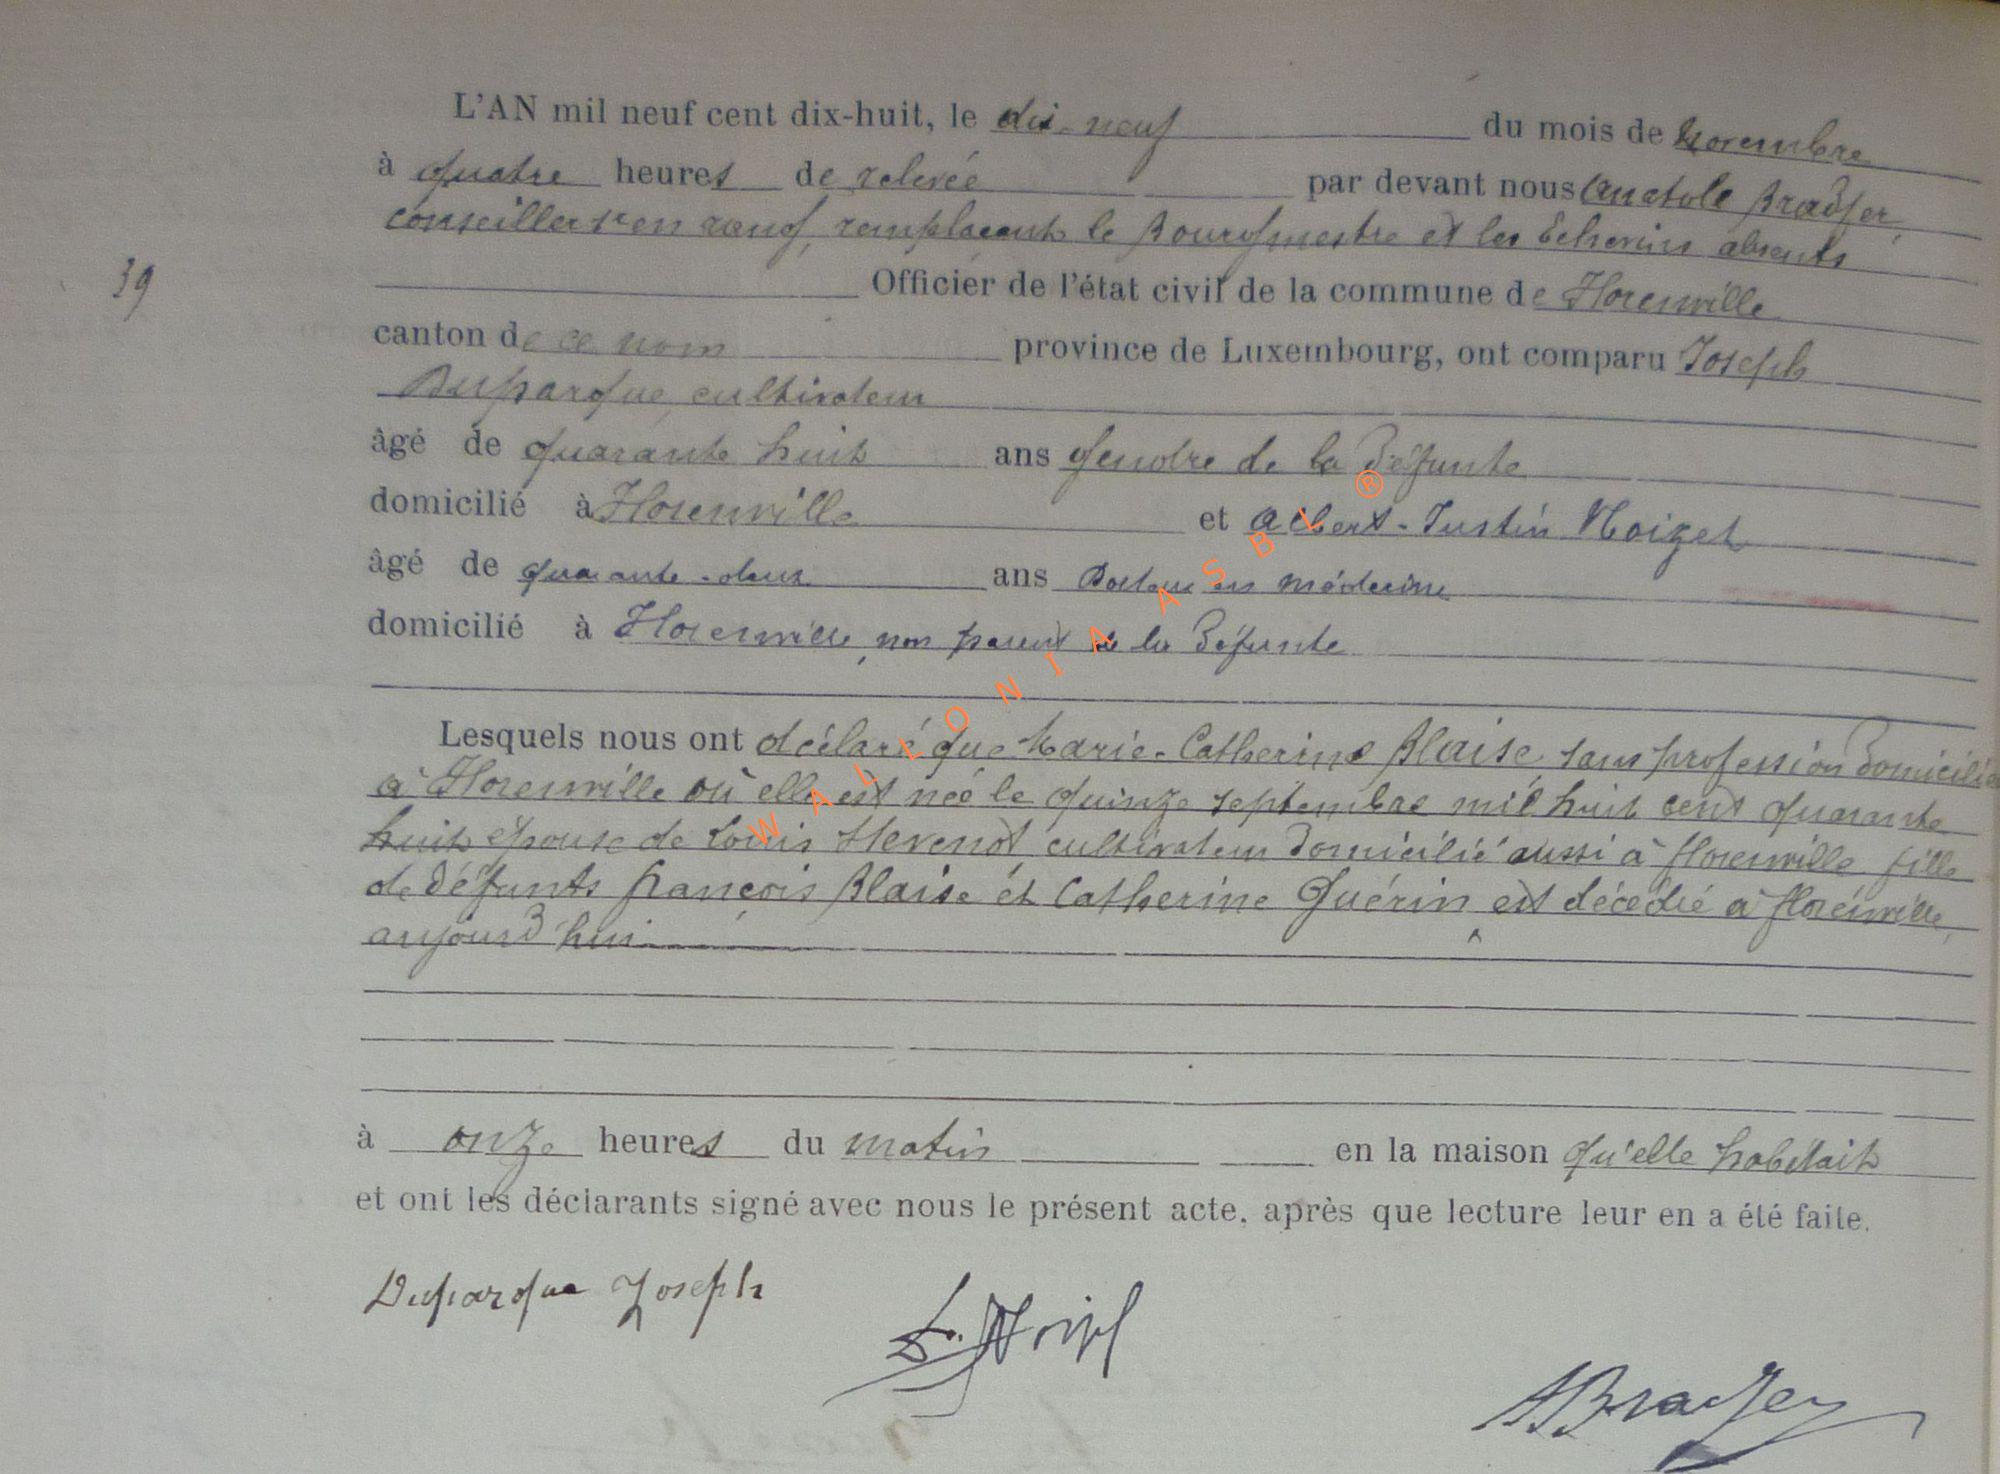 L'AN mil neuf cent dix-huit, le dix-neuf du mois de Novembre
à quatre heures de relevée par devant nous Anatole Bradfer,
conseiller 1er en rang, remplaçant le Bourgmestre et les Echevins absents
39
Officier de l'état civil de la commune de Florenville
canton de ce nom province de Luxembourg, ont comparu Joseph
Duparque, cultivateur
âgé de quarante huit ans gendre de la défunte
domicilié à Florenville et Albert-Justin Noizet
âgé de quarante-deux ans Docteur en médecine
domicilié à Florenville, non parent de la défunte
Lesquels nous ont déclaré que Marie-Catherine Blaise sans profession domicilié
à Florenville où elle est née le quinze septembre mil huit cent quarante
huit épouse de Louis cultivateur domicilié aussi à florenville fille
de défunts françois Blaise et Catherine Guérin est décédé à florenville,
aujourd'hui
à onze heures du matin en la maison qu'elle habitait
et ont les déclarants signé avec nous le présent acte, après que lecture leur en a été faite.
Duparque Joseph
ABradfer
WALLONIA ASBL ®